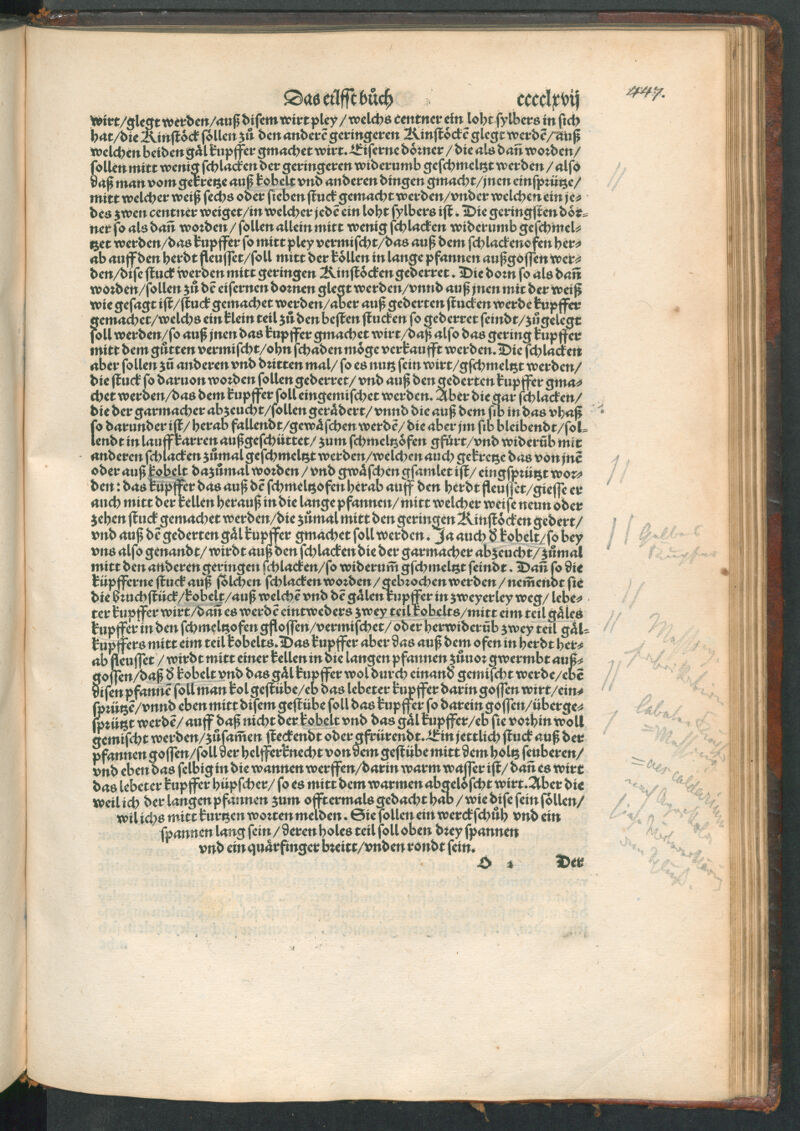 Das eilfft bůch cccclxvij 447.
wirt/glegt werden/auß disem wirt pley/welchs centner ein loht sylbers in sich
hat/die Kinstöck söllen zů den anderẽ geringeren Kinstöckẽ glegt werdẽ/auß
welchen beiden gäl kupffer gmacht wirt. Eiserne dörner/die als dañ worden/
sollen mitt wenig schlacken der geringeren widerumb geschmeltzt werden/also
daß man vom gekretze auß kobelt vnd anderen dingen gmacht/jnen einsprütze/
mitt welcher weiß sechs oder sieben stuck gemacht werden/vnder welchen ein je⸗
des zwen centner weiget/in welcher jedẽ ein loht sylbers ist. Die geringsten dör⸗
ner so als dañ worden/sollen allein mitt wenig schlacken widerumb geschmel⸗
tzet werden/das kupffer so mitt pley vermischt/das auß dem schlackenofen her⸗
ab auff den herdt fleusset/soll mitt der köllen in lange pfannen außgossen wer⸗
den/dise stuck werden mitt geringen Kinstöcken gederret. Die dorn so als dañ
worden/sollen zů dẽ eisernen dornen glegt werden/vnnd auß jnen mit der weiß
wie gesagt ist/stuck gemachet werden/aber auß gederten stucken werdẽ kupffer
gemachet/welchs ein klein teil zů den besten stucken so gederret seindt/zůgelegt
soll werden/so auß jnen das kupffer gmachet wirt/daß also das gering kupffer
mitt dem gůtten vermischt/ohn schaden möge verkaufft werden. Die schlacken
aber sollen zů anderen vnd dritten mal/so es nutz sein wirt/gschmeltzt werden/
die stuck so daruon worden sollen gederret/vnd auß den gederten kupffer gma⸗
chet werden/das dem kupffer soll eingemischet werden. Aber die gar schlacken/
die der garmacher abzeucht/sollen gerädert/vnnd die auß dem sib in das vhaß
so darunder ist/herab fallendt/gewäschen werdẽ/die aber im sib bleibendt/sol⸗
lendt in lauffkarren außgeschüttet/zum schmeltzöfen gfürt/vnd widerũb mit
anderen schlacken zůmal geschmeltzt werden/welchen auch gekretze das von jnẽ
oder auß kobelt dazůmal worden/vnd gwäschen gsamlet ist/eingsprützt wor⸗
den: das kupffer das auß dẽ schmeltzofen herab auff dem herdt fleusset/giesse er
auch mitt der kellen herauß in die lange pfannen/mitt welcher weise neun oder
zehen stuck gemachet werden/die zůmal mitt den geringen Kinstöcken gedert/
vnd auß dẽ gederten gäl kupffer gmachet soll werden. Ja auch d kobelt/so bey
vns also genandt/wirdt auß den schlacken die der garmacher abzeucht/zůmal
mitt den anderen geringen schlacken/so widerum̃ gschmeltzt seindt. Dañ so die
küpfferne stuck auß sölchen schlacken worden/gebrochen werden/nem̃endt sie
die bruchstück/kobelt/auß welchẽ vnd dẽ gälen kupffer in zweyerley weg/lebe⸗
ter kupffer wirt/dañ es werdẽ eintweders zwey teil kobelts/mitt eim teil gäles
kupffer in den schmeltzofen gflossen/vermischet/oder herwiderũb zwey teil gäl⸗
kupffers mitt eim teil kobelts. Das kupffer aber das auß dem ofen in herdt her⸗
ab fleusset/wirdt mitt einer kellen in die langen pfannen zůuor gwermbt auß⸗
gossen/daß d kobelt vnd das gäl kupffer wol durch einand gemischt werde/ebẽ
disen pfannẽ soll man kol gestübe/eb das lebeter kupffer darin gossen wirt/ein⸗
sprützẽ/vnnd eben mitt disem gestübe soll das kupffer so darein gossen/überge⸗
sprützt werdẽ/auff daß nicht der kobelt vnd das gäl kupffer/eb sie vorhin woll
gemischt werden/zůsam̃en steckendt oder gfrürendt. Ein jettlich stuck auß der
pfannen gossen/soll der helfferknecht von dem gestübe mitt dem holtz seuberen/
vnd eben das selbig in die wannen werffen/darin warm wasser ist/dañ es wirt
das lebeter kupffer hüpscher/so es mitt dem warmen abgelöscht wirt. Aber die
weil ich der langen pfannen zum offtermals gedacht hab/wie dise sein söllen/
wil ichs mitt kurtzen worten melden. Sie sollen ein werckschůh vnd ein
spannen lang sein/deren holes teil soll oben drey spannen
vnd ein quärfinger breitt/vnden rondt sein.
O 2 Der
Gelbes
Kupfer
Messing-
fabrikation
= Messing
= aes caldarium
nach Agricola